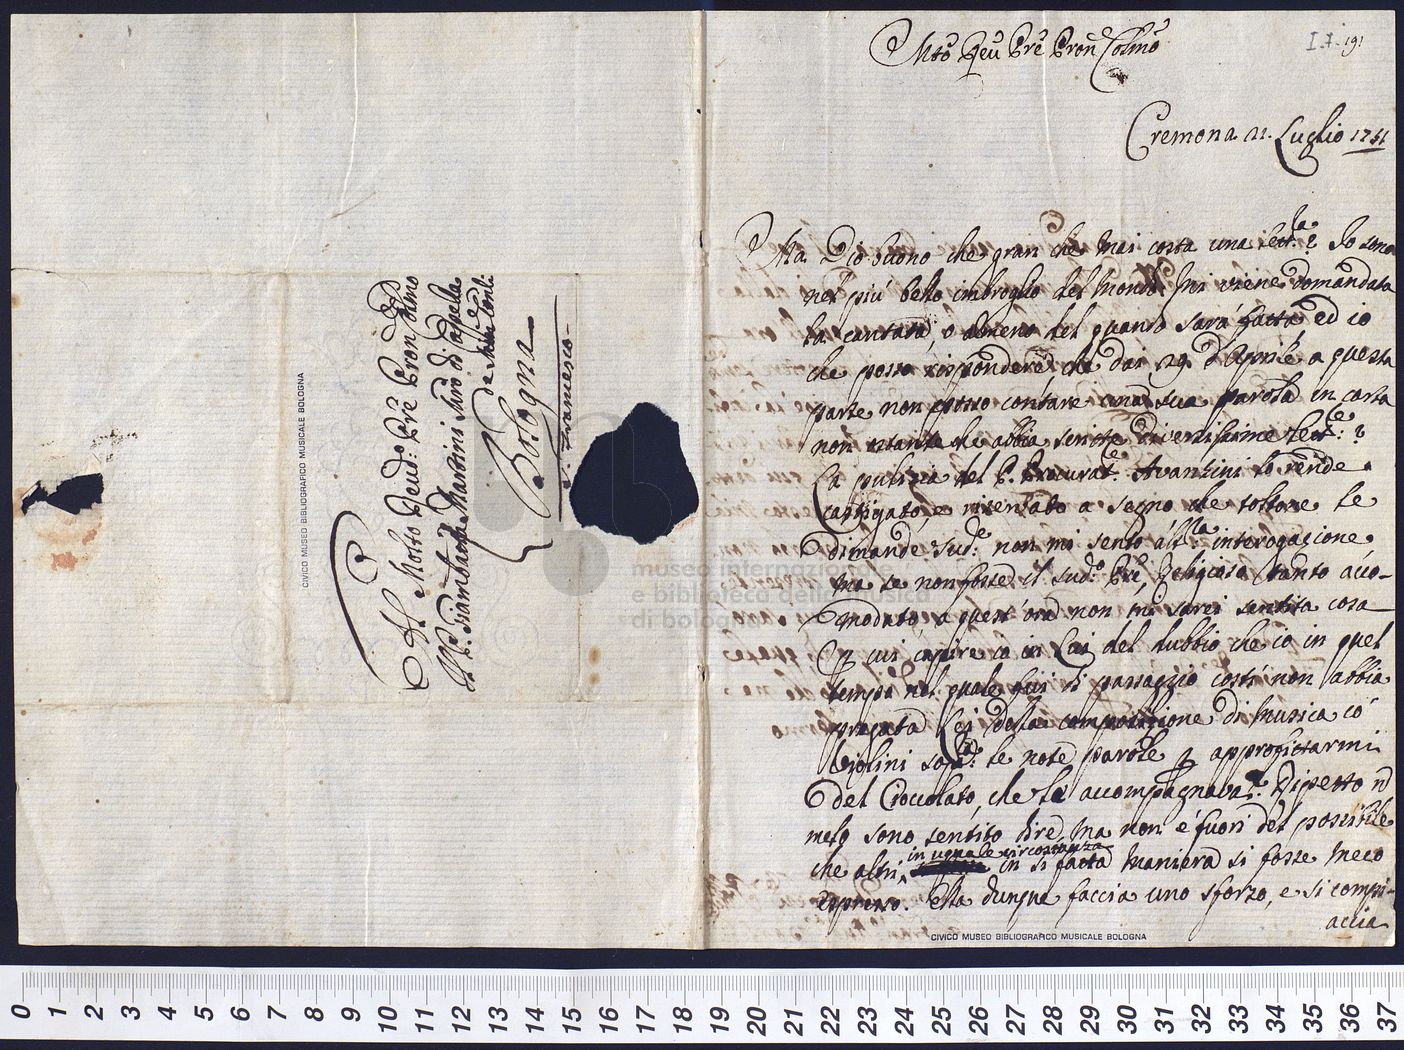 Al Molto Revdo: Pre Pron Colmo
Il P. Giambatta Martini Mro di Capella
de Min: Conti
Bologna
S. Francesco
CIVICO MUSEO BIBLIOGRAFICO MUSICALE BOLOGNA
museo internazionale
e biblioteca della musica
di bologna
I.7. 191
Mto Reu Pre Pron Colmo
Cremona 21. Luglio 1751
Ma Dio buono che gran che mai costa una lettra? Io sono
nel più bello imbroglio del mondo. Mi viene domandata
la cantata, o almeno del quando sarà fatta, ed io
che posso rispondere, che dai 29. d'Aprile a questa
parte non posso contare una sua parola in carta
non ostante che abbia scritte diversissime Lettre:?
La pulizia del P. Procurate: Avanzini lo rende
castigato, e riservato a segno che toltone le
dimande sude: non mi sento altra interogazione
ma se non fosse il sudo: Pre Religioso tanto acco-
modato, a quest'ora non mi sarei sentita cosa
p cui capire io in Lei del dubbio che io in quel
tempo nel quale fui di passaggio costì non abbia
pregata Lei della composizione di musica co'
Violini sopa: le note parole p approfittarmi
del Cioccolato, che la accompagnava: Dipetto n
melo sono sentito dire, ma non è fuori del possibile
che altri in uguale circostanza in sì fatta maniera si fosse meco
espresso. Ella dunque faccia uno sforzo, e si compi-
accia
CIVICO MUSEO BIBLIOGRAFICO MUSICALE BOLOGNA
0 1 2 3 4 5 6 7 8 9 10 11 12 13 14 15 16 17 18 19 20 21 22 23 24 25 26 27 28 29 30 31 32 33 34 35 36 37